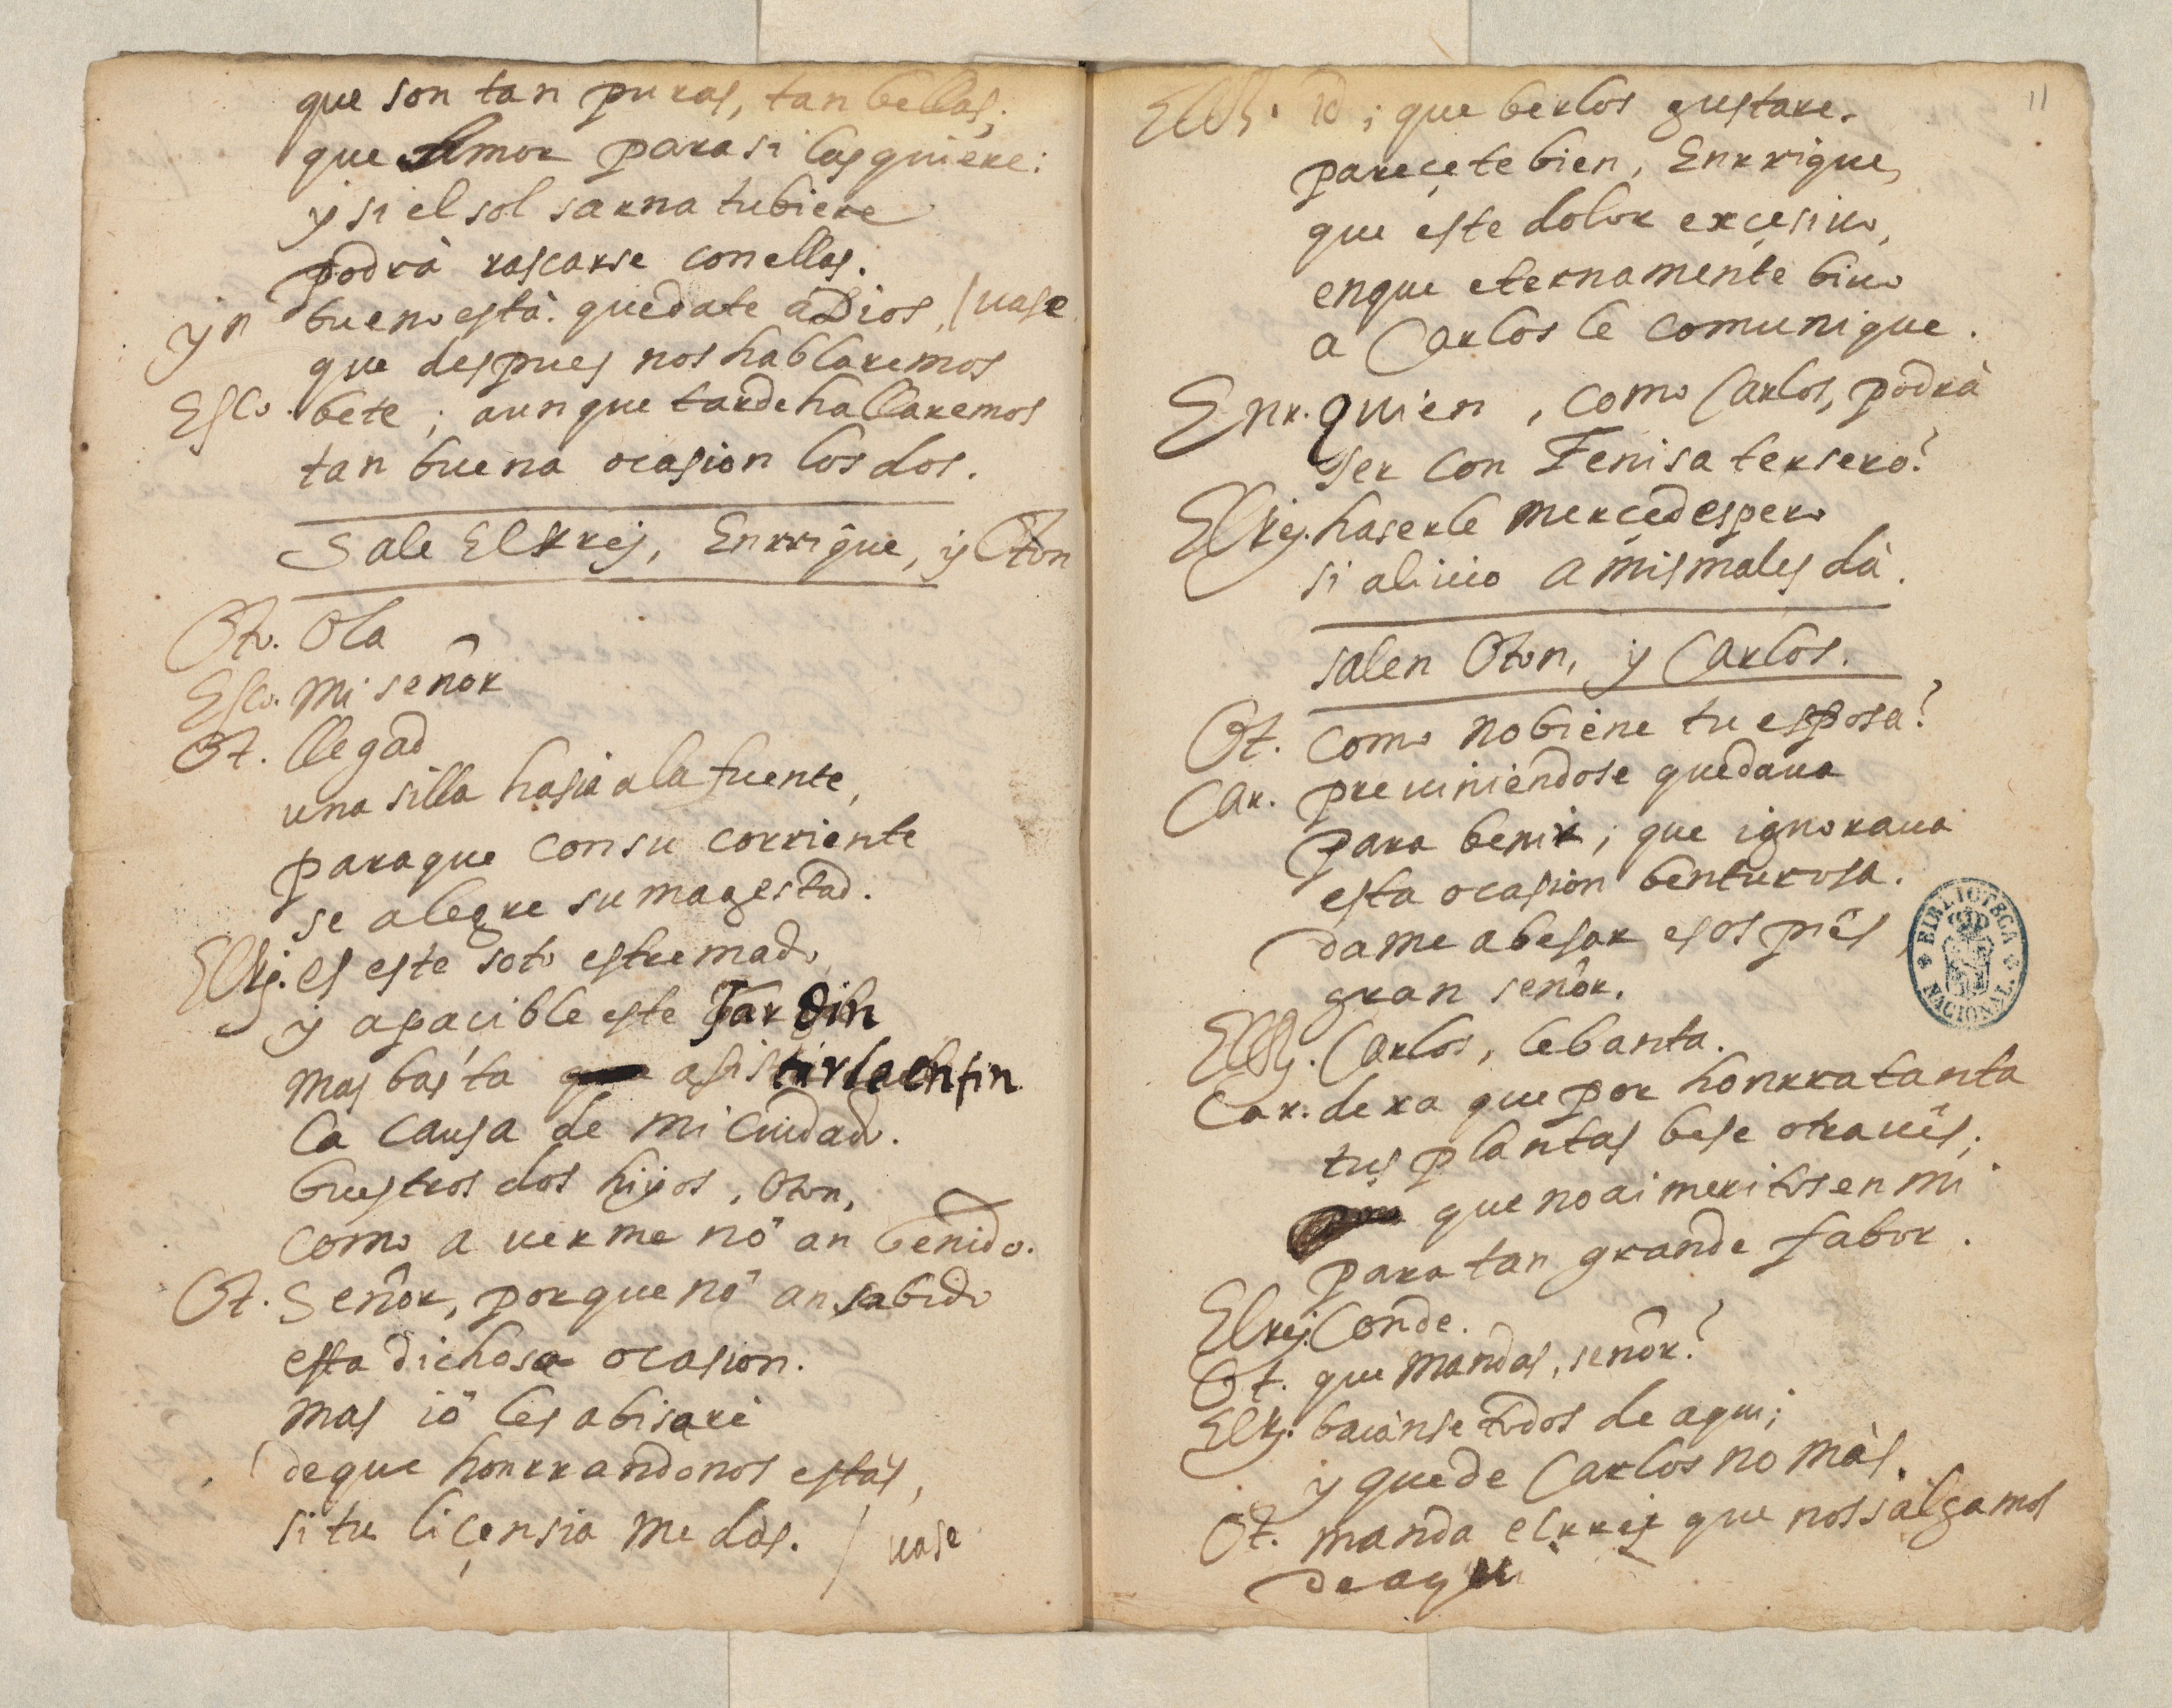 que son tan puras, tan bellas;
que Amor para si las quiere:
y si el sol sarna tubiere
podrà rascarse con ellas.
yn bueno està. quedate a Dios, / uase
que despues nos hablaremos
Esco. bete; aunque tarde hallaremos
tan buena ocasion los dos.
Sale El Rrej, Enrrique, y Oton
Oto. Ola
Esco. mi señor
Ot. llegad
una silla hasia a la fuente,
para que con su corriente
se alegre su magestad.
El Rej. es este soto estremado,
y apacible este Jardin
mas basta asistirle en fin
la causa de mi cuidado.
buestros dos hijos, Oton,
como a uerme nò an benido.
Ot. Señor, porque nò an sabido
esta dichosa ocasion.
mas iò les abisarè
de que honrrandonos estàs,
si tu liçensia me das. / uase
11
El Rej. id; que berlos gustare.
pareçete bien, Enrrique,
que este dolor exçesiuo,
en que eternamente biuo
a Carlos le comunique.
Enr. quien, como Carlos, podrà
ser con Fenisa tersero?
El Rej. haserle merçed espero
si aliuio a mis males dà.
salen Oton, y Carlos.
Ot. como no biene tu esposa?
Car. preuiniendose quedaua
para benir; que ignoraua
esta ocasion benturosa.
dame a besar esos piès,
gran señor.
El Rej. Carlos, lebanta.
Car. dexa que por honrra tanta
tus plantas bese otra uès;
que no ai meritos en mi
para tan grande fabor.
El Rej. Conde.
Ot. que mandas, señor?
El Rj. baianse todos de aqui;
y quede Carlos no màs.
Ot. manda el rrej que nos salgamos
de aqui
BIBLIOTECA NACIONAL